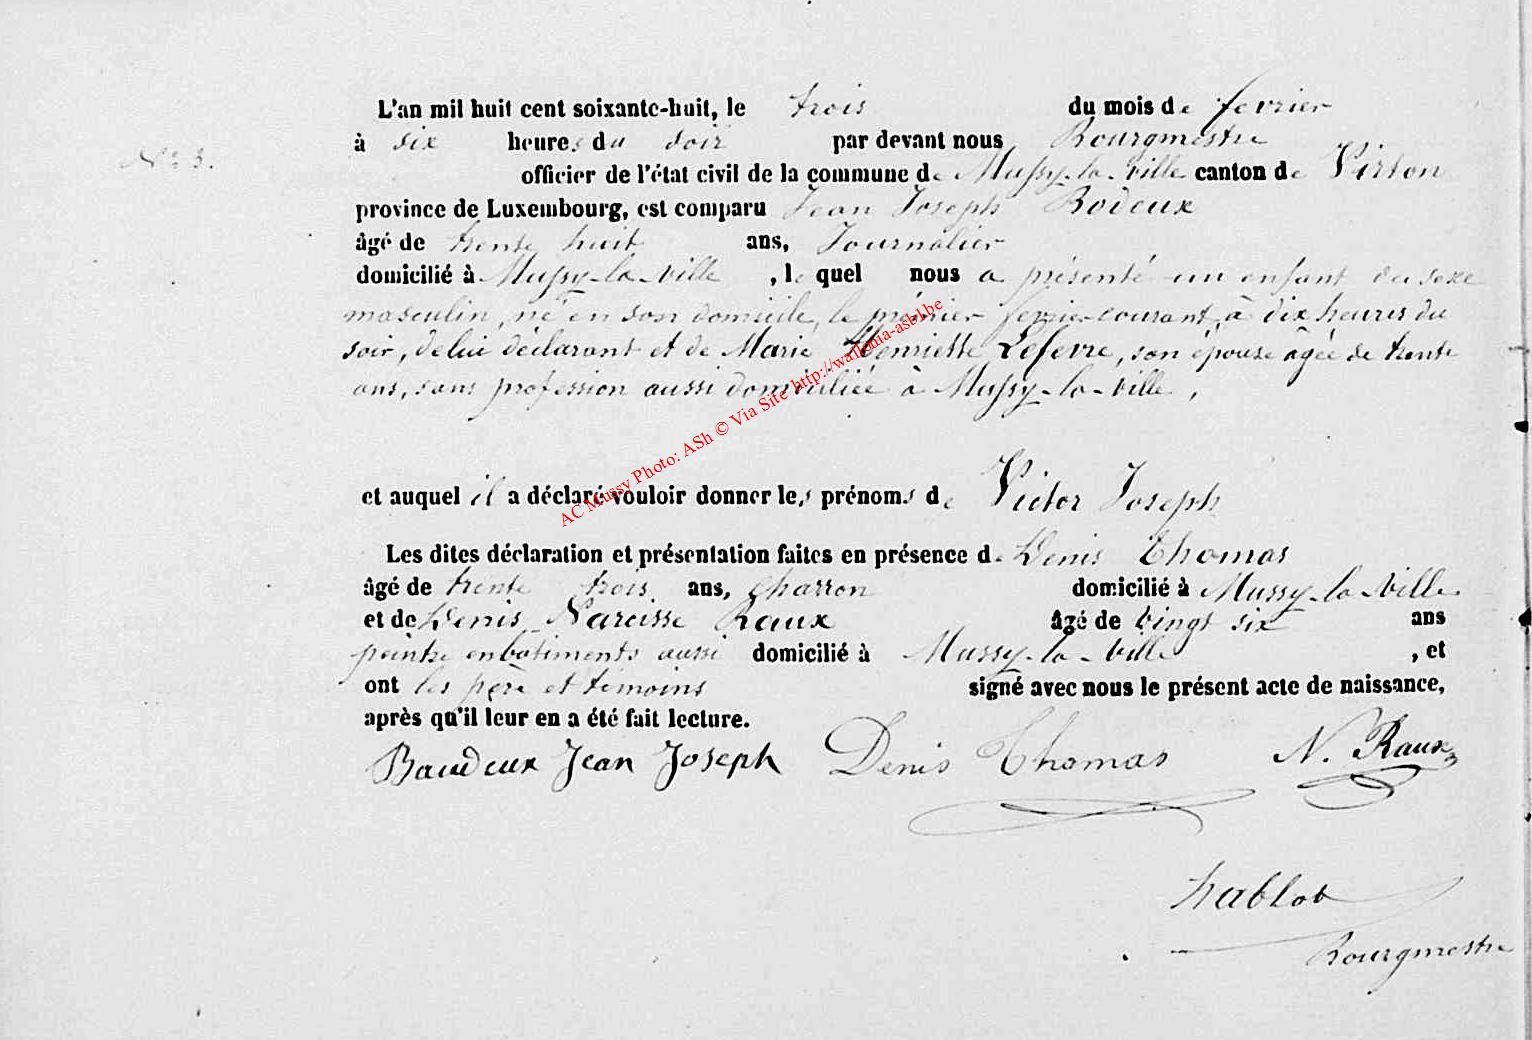 L'an mil huit cent soixante-huit, le trois du mois de fevrier
à six heures du soir par devant nous Bourgmestre
N° 3.
officier de l'état civil de la commune de Mussy-la-Ville canton de Virton
province de Luxembourg, est comparu Jean Joseph Bodeux
âgé de trente huit ans, Journalier
domicilié à Mussy-la-Ville, lequel nous a présenté un enfant du sexe
masculin, né en son domicile, le prémier fevrier courant, à dix heures du
soir, de lui déclarant et de Marie Henriette Lefevre, son épouse âgée de trente
ans, sans profession aussi domiciliée à Mussy-la-Ville,
et auquel il a déclaré vouloir donner les prénoms de Victor Joseph
Les dites déclaration et présentation faites en présence de Denis Thomas
âgé de trente trois ans, charron domicilié à Mussy-la-Ville
et de Denis Narcisse Raux âgé de vingt six ans
peintre en batiments aussi domicilié à Mussy-la-Ville, et
ont les père et témoins signé avec nous le présent acte de naissance,
après qu'il leur en a été fait lecture.
Baudeux Jean Joseph Denis Thomas N. Raux
hablot
Bourgmestre
AC Mussy Photo: ASh © Via Site http://wallonia-asbl.be